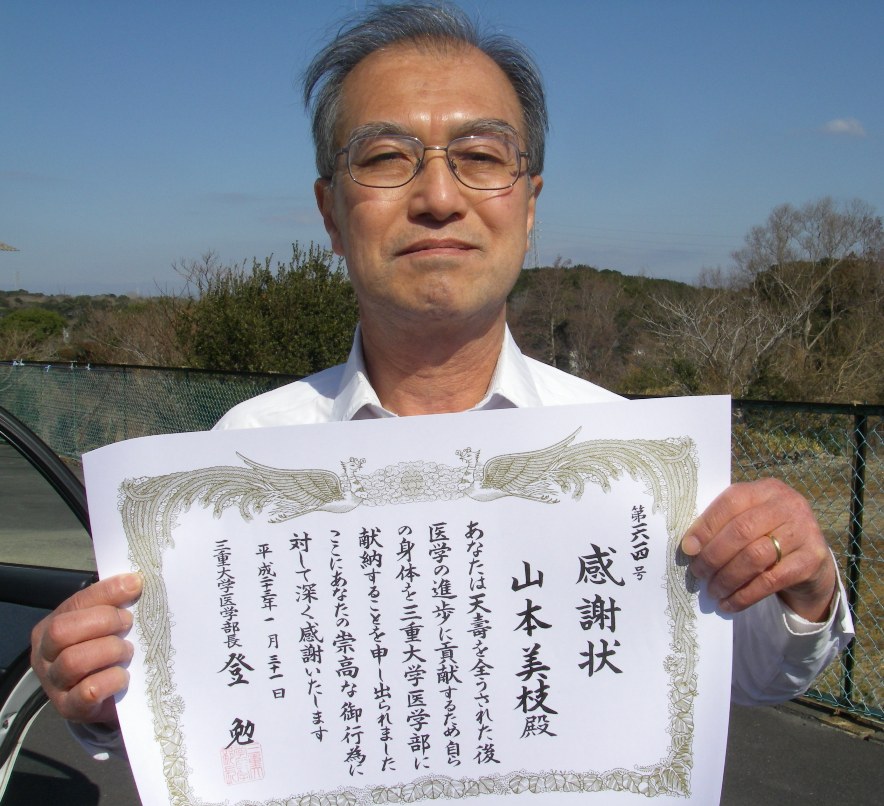 第一六一四号
感謝状
山本美枝殿
あなたは天壽を全うされた後
医学の進歩に貢献するため自ら
の身体を三重大学医学部に
献納することを申し出られました
ここにあなたの崇高な御行為に
対して深く感謝いたします
平成二十三年一月三十一日
三重大学医学部長 登 勉